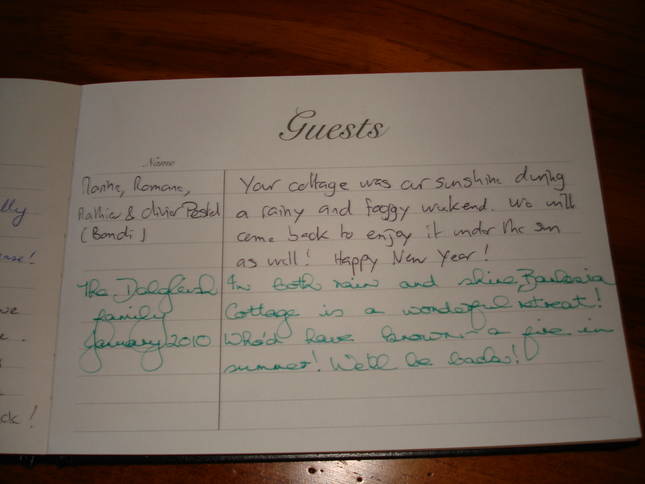 lly
ense!
we
e.
s
ck!
Guests
Name
Marine, Romane,
Mathieu & Olivier Postel
(Bondi)
Your cottage was our sunshine during
a rainy and foggy weekend. We will
come back to enjoy it under the sun
as well! Happy New Year!
The Dalgleish
family
January 2010
In both rain and shine
Cottage is a wonderful retreat!
Who'd have known - a fire in
summer! We'll be back!